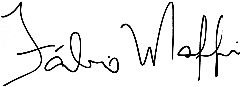 Fábio Maffi